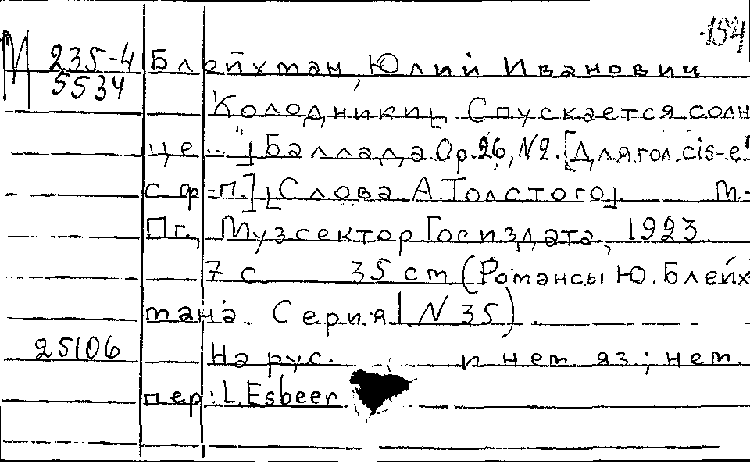 154
М 235-4 Блейхман, Юлий Иванович
5534
Колодники „Спускается солн
це..." Баллада Ор. 26, №2. [Для гол. cis-e"
с ф-п.] Слова А. Толстого М-
Пг., Музсектор Госиздата, 1923
7 с 35 cm (Романсы Ю. Блейх
мана. Серия I N 35)
25106 На рус. и нем. яз; нем.
пер: L. Esbeer